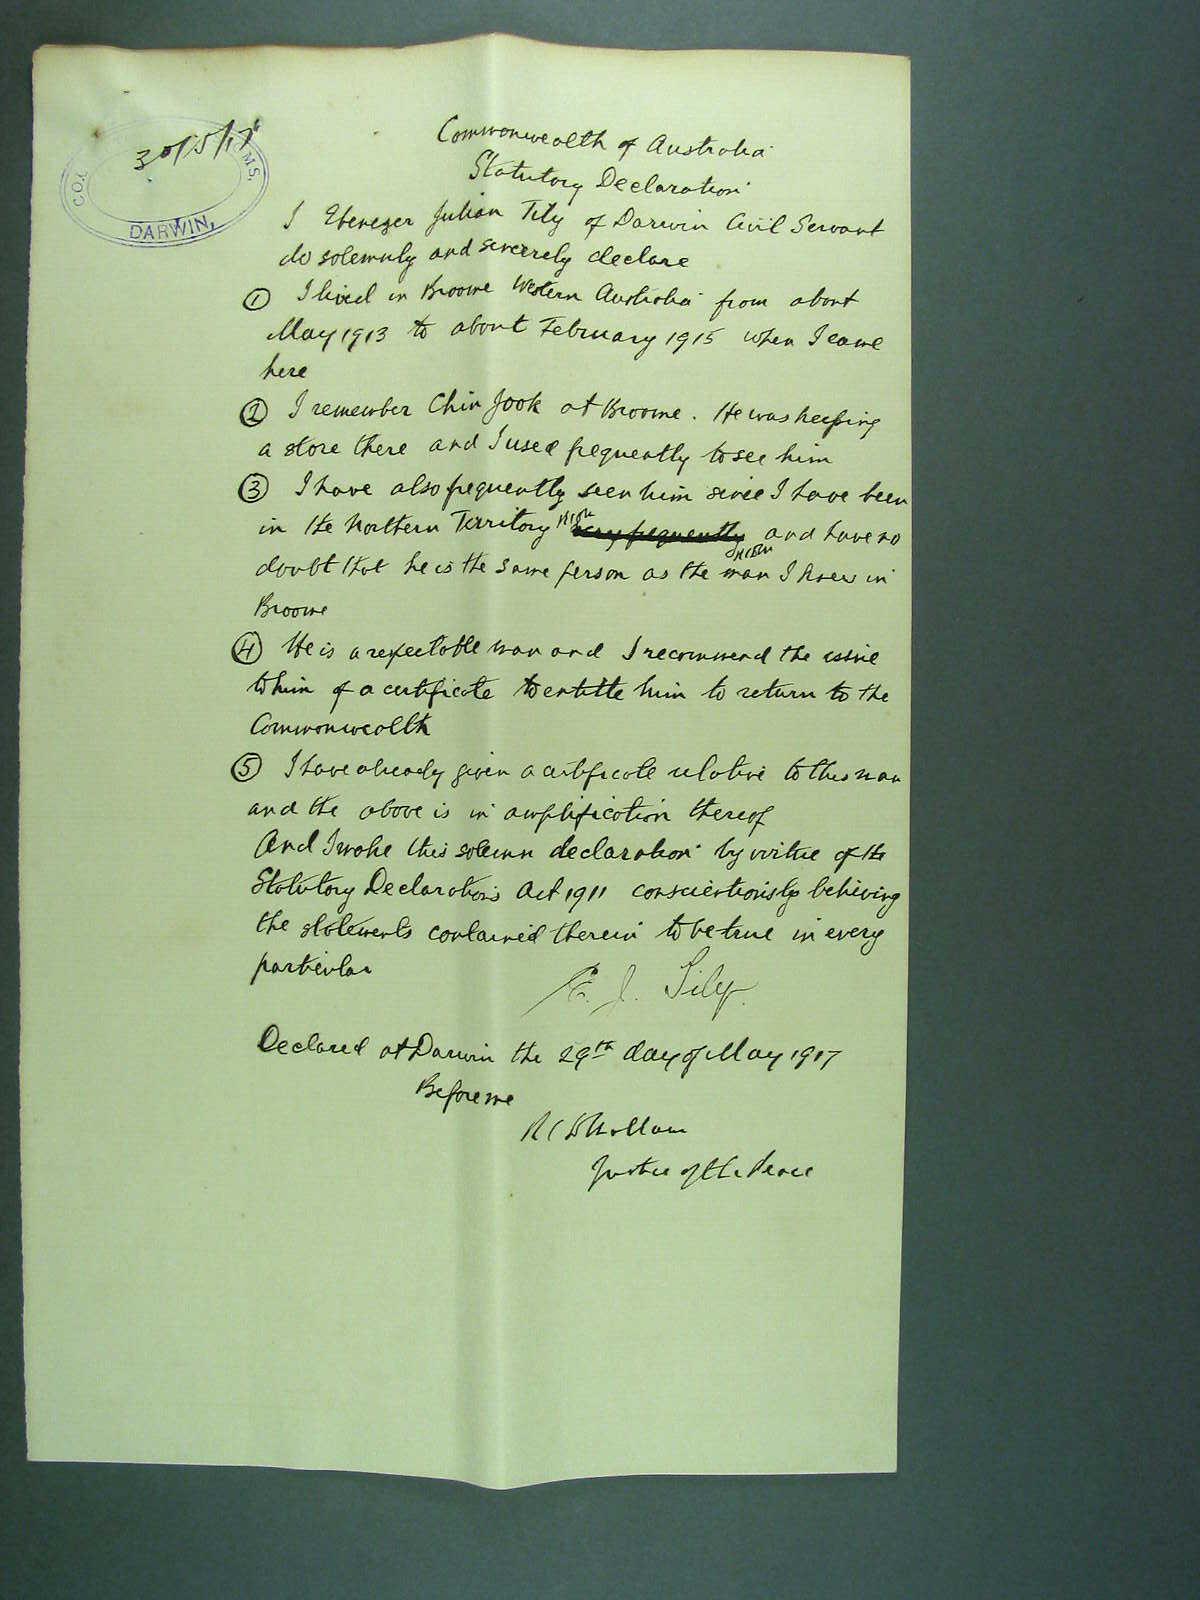 30/5/17
DARWIN,
Commonwealth of Australia
Statutory Declaration
I Ebenezer Julian Tily of Darwin Civil Servant
do solemnly and sincerely declare
① I lived in Broome Western Australia from about
May 1913 to about February 1915 when I came
here
② I remember Chin Jook at Broome. He was keeping
a store there and I used frequently to see him
③ I have also frequently seen him since I have been
in the Northern Territory very frequently and have no
doubt that he is the same person as the man I knew in
Broome
④ He is a respectable man and I recommend the issue
to him of a certificate to entitle him to return to the
Commonwealth
⑤ I have already given a certificate relative to this man
and the above is in amplification thereof
And I make this solemn declaration by virtue of the
Statutory Declarations Act 1911 conscientiously believing
the statements contained therein to be true in every
particular
E. J. Tily.
Declared at Darwin the 29th day of May 1917
Before me
Justice of the Peace